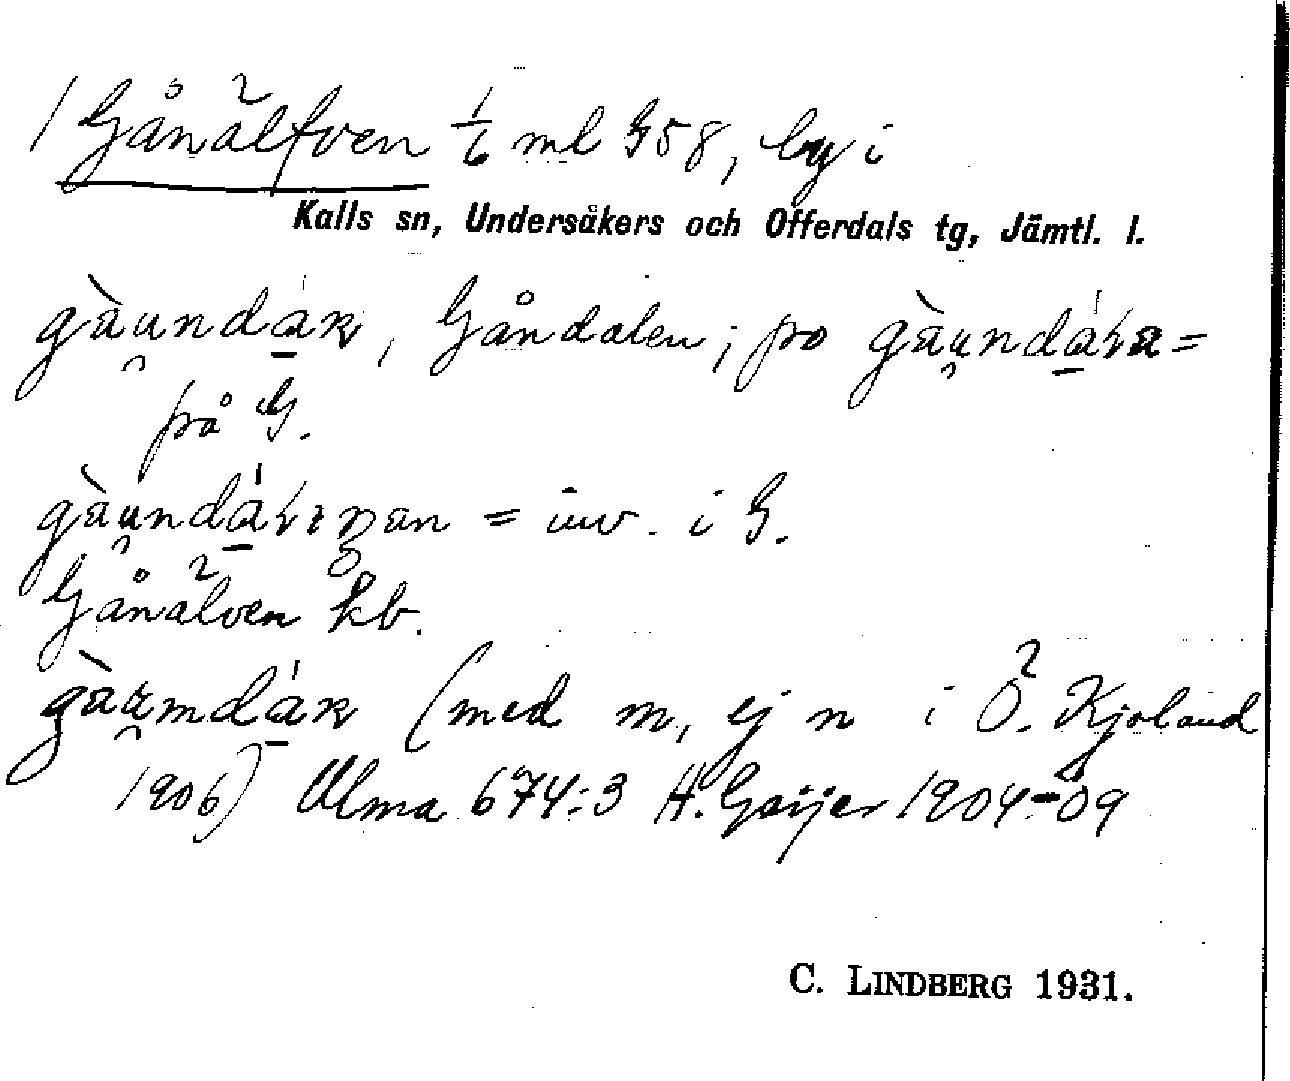 / Gånälfven 1/6 ml G58, by i
Kalls sn, Undersåkers och Offerdals tg, Jämtl. l.
gàundàɴ, Gåndalen; po gàundàɾa=
på G.
= inv. i G.
Gånälven kb.
(med m, ej n i Ö. Kjoland
1906) Ulma 674:3 H. Geijer 1904-09
C. LINDBERG 1931.